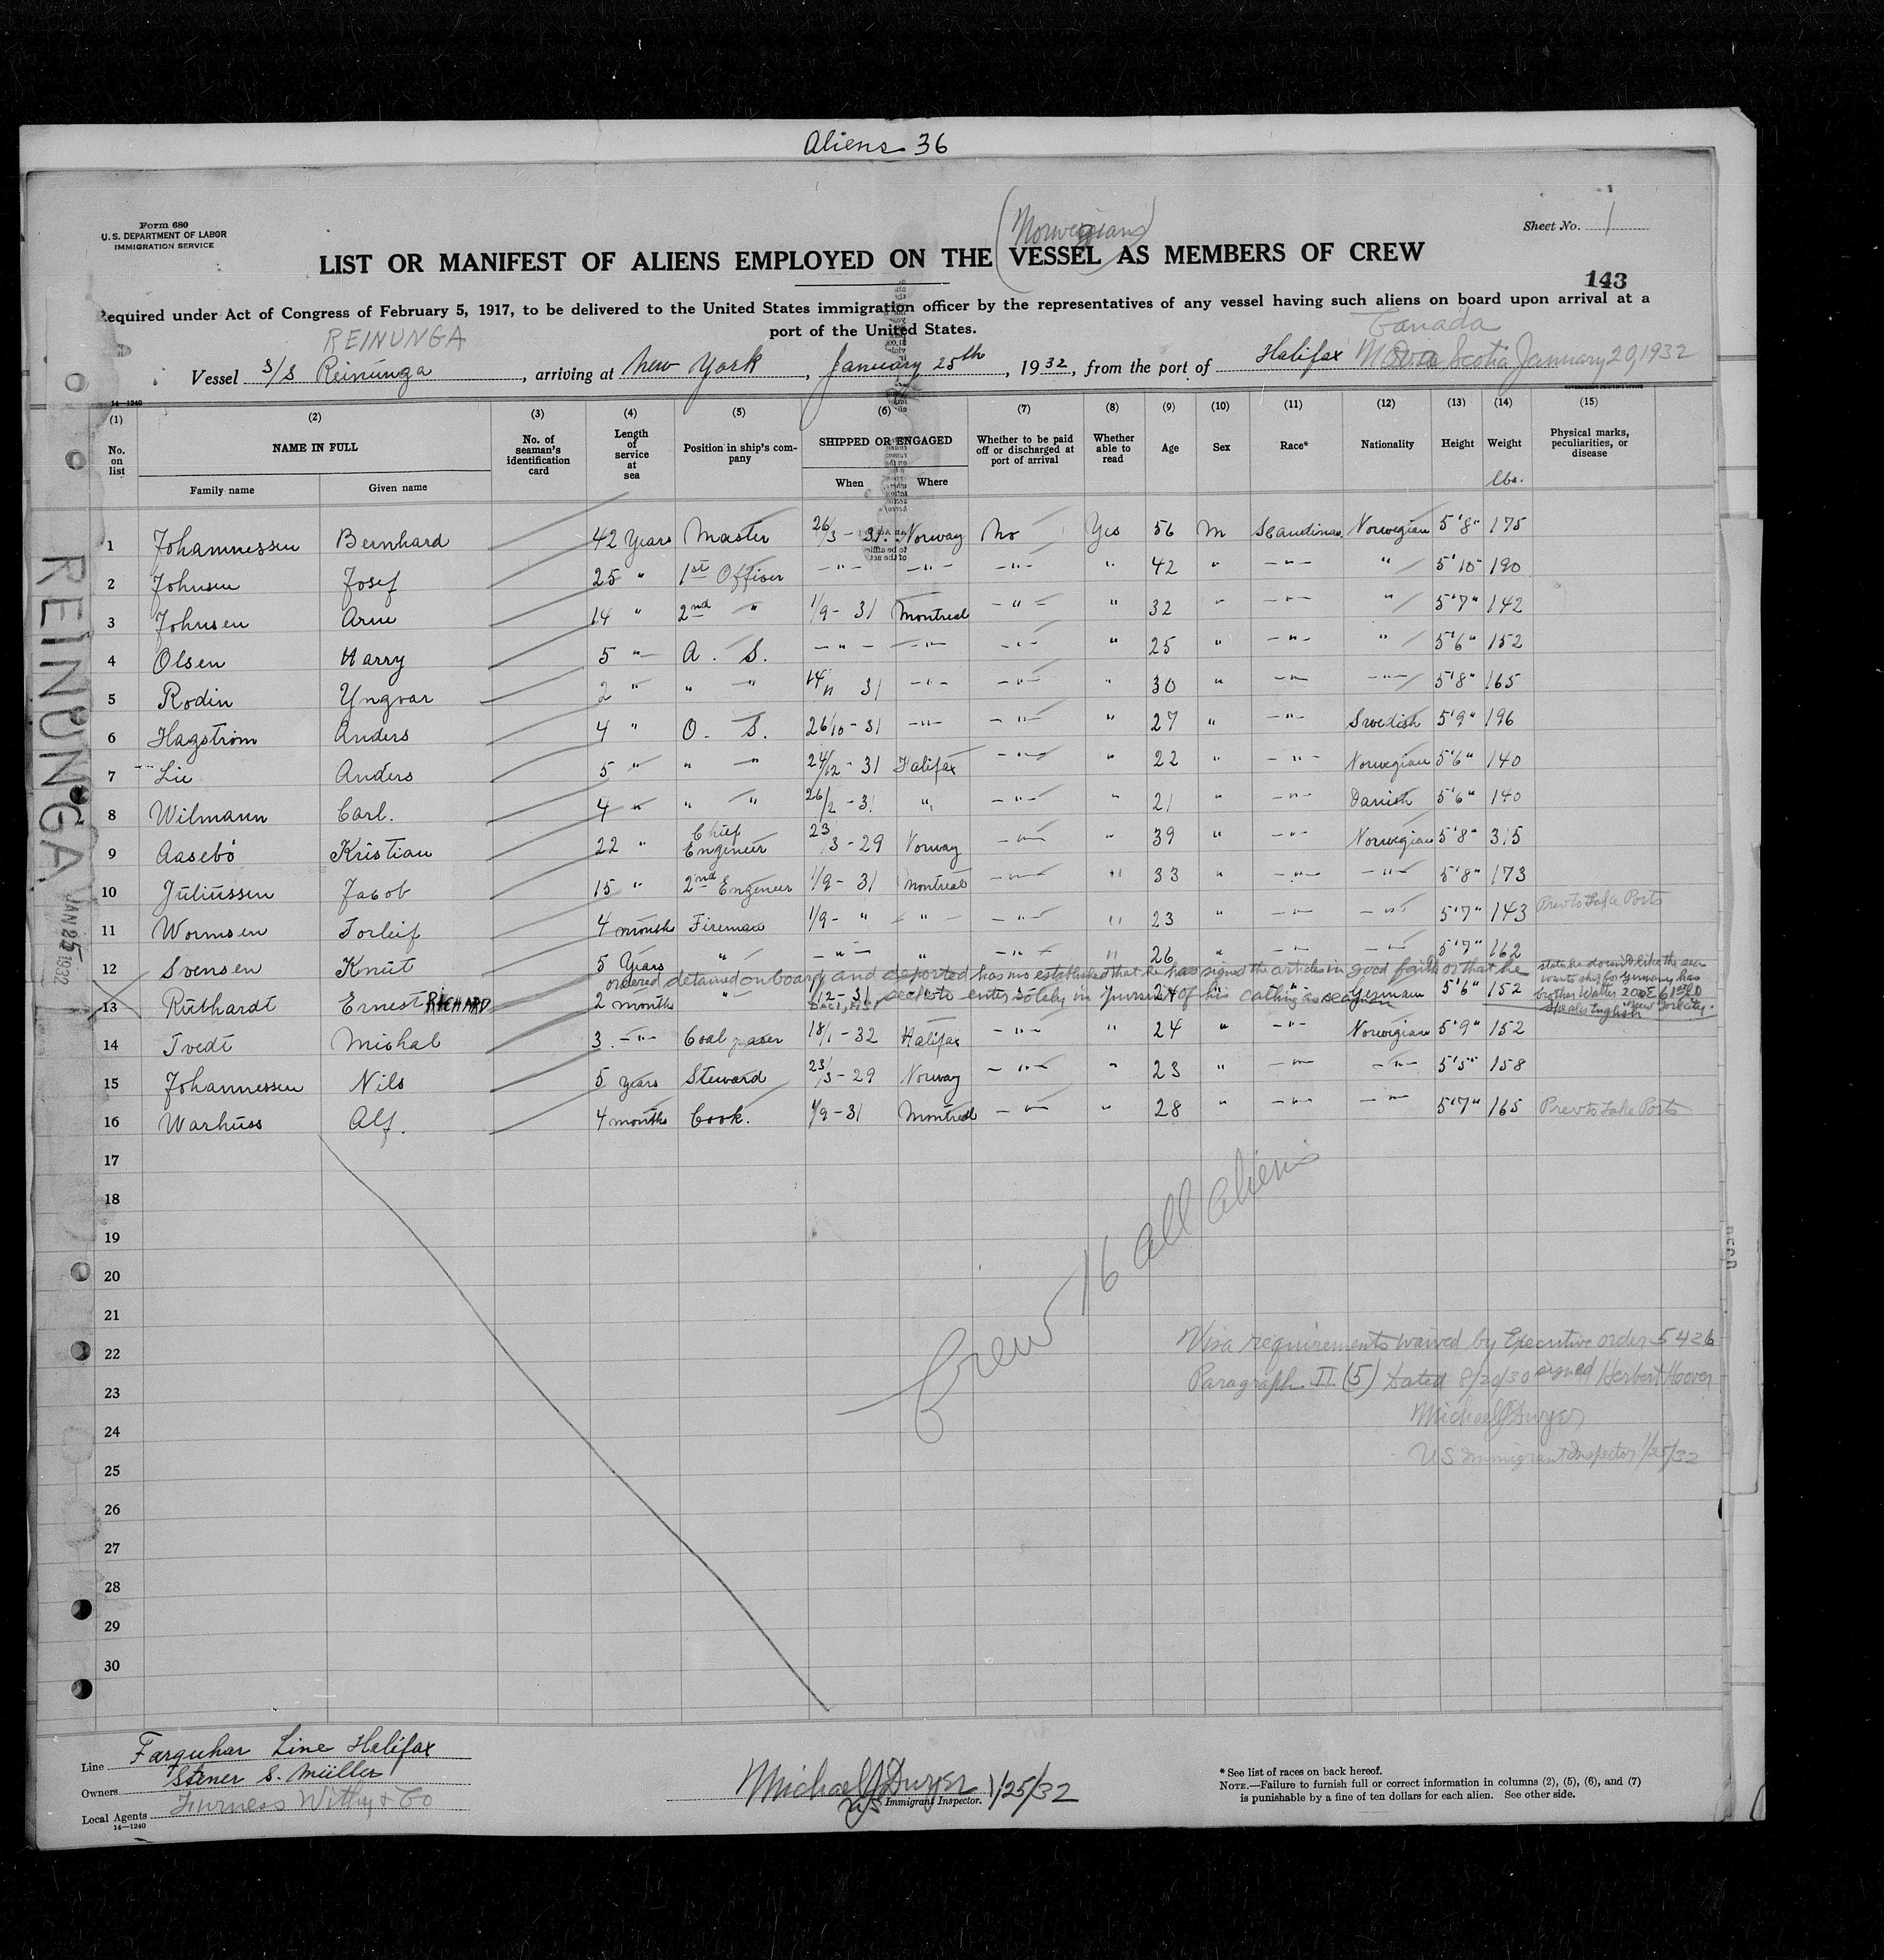 Aliens 36
Form 680
U. S. DEPARTMENT OF LABOR
IMMIGRATION SERVICE
Sheet No. 1
(Norwegian)
LIST OR MANIFEST OF ALIENS EMPLOYED ON THE VESSEL AS MEMBERS OF CREW
143
Required under Act of Congress of February 5, 1917, to be delivered to the United States immigration officer by the representatives of any vessel having such aliens on board upon arrival at a
port of the United States.
REINUNGA
Canada
Vessel S/S Reinunga, arriving at New York, January 25th, 1932, from the port of Halifax Nova Scotia January 20, 1932
14—1240
GOVERNMENT PRINTING OFFICE
(1) (2) (3) (4) (5) (6) (7) (8) (9) (10) (11) (12) (13) (14) (15)
No. on list NAME IN FULL No. of seaman's identification card Length of service at sea Position in ship's company SHIPPED OR ENGAGED Whether to be paid off or discharged at port of arrival Whether able to read Age Sex Race* Nationality Height Weight Physical marks, peculiarities, or disease
Family name Given name When Where lbs.
1 Johannessen Bernhard 42 Years Master 26/3 - 31. Norway No Yes 56 M Scandinav. Norwegian 5'8" 175
2 Johnsen Josef 25 " 1st Officer -"- -"- -"- " 42 " -"- " 5'10" 190
3 Johnsen Arne 14 " 2nd " 1/9 - 31 Montreal -"- " 32 " -"- " 5'7" 142
4 Olsen Harry 5 " A. S. -"- -"- -"- " 25 " -"- " 5'6" 152
5 Rodin Yngvar 2 " " " 14/11 31 -"- -"- " 30 " -"- -"- 5'8" 165
6 Hagstrom Anders 4 " O. S. 26/10 - 31 -"- -"- " 27 " -"- Swedish 5'9" 196
7 Lie Anders 5 " " " 24/12 - 31 Halifax -"- " 22 " -"- Norwegian 5'6" 140
8 Wilmann Carl. 4 " " " 26/2 - 31 " -"- " 21 " -"- Danish 5'6" 140
9 Aasebö Kristian 22 " Chief Engineer 23/3 - 29 Norway -"- " 39 " -"- Norwegian 5'8" 315
10 Juliussen Jacob 15 " 2nd Engineer 1/9 - 31 Montreal -"- " 33 " -"- -"- 5'8" 173
11 Wormsen Torleif 4 months Fireman 1/9 - " " -"- " 23 " -"- -"- 5'7" 143 Prev to Lake Ports
12 Svensen Knut 5 Years " -"- " -"- " 26 " -"- -"- 5'7" 162
ordered detained on board and deported has not established that he has signed the articles in good faith or that he
seeks to enter solely in pursuit of his calling as seaman
states he doesn't like the sea
wants ship for Germany, has
brother Walter 200 E 61st
New York City.
speaks English
13 Ruthardt Ernest RICHARD 2 months " /12 - 31 " 24 " " German 5'6" 152
14 Tvedt Michal 3. -"- Coal 18/1 - 32 Halifax -"- " 24 " -"- Norwegian 5'9" 152
15 Johannessen Nils 5 years Steward 23/3 - 29 Norway -"- " 23 " -"- -"- 5'5" 158
16 Warhuss Alf. 4 months Cook. 1/9 - 31 Montreal -"- " 28 " -"- -"- 5'7" 165 Prev to Lake Ports
17
18
19
20
21
22
23
24
25
26
27
28
29
30
Crew 16 all aliens
Visa requirements waived by Executive order 5426
Paragraph II (5) Dated 8/20/30 signed Herbert Hoover
Michael J Dwyer
US Immigrant Inspector 1/25/32
REINUNGA JAN 25 1932
Line Farquhar Line Halifax
Owners Stener S. Müller
Local Agents Furness Withy & Co
14—1240
Michael J Dwyer 1/25/32
US Immigrant Inspector.
* See list of races on back hereof.
NOTE.—Failure to furnish full or correct information in columns (2), (5), (6), and (7)
is punishable by a fine of ten dollars for each alien. See other side.